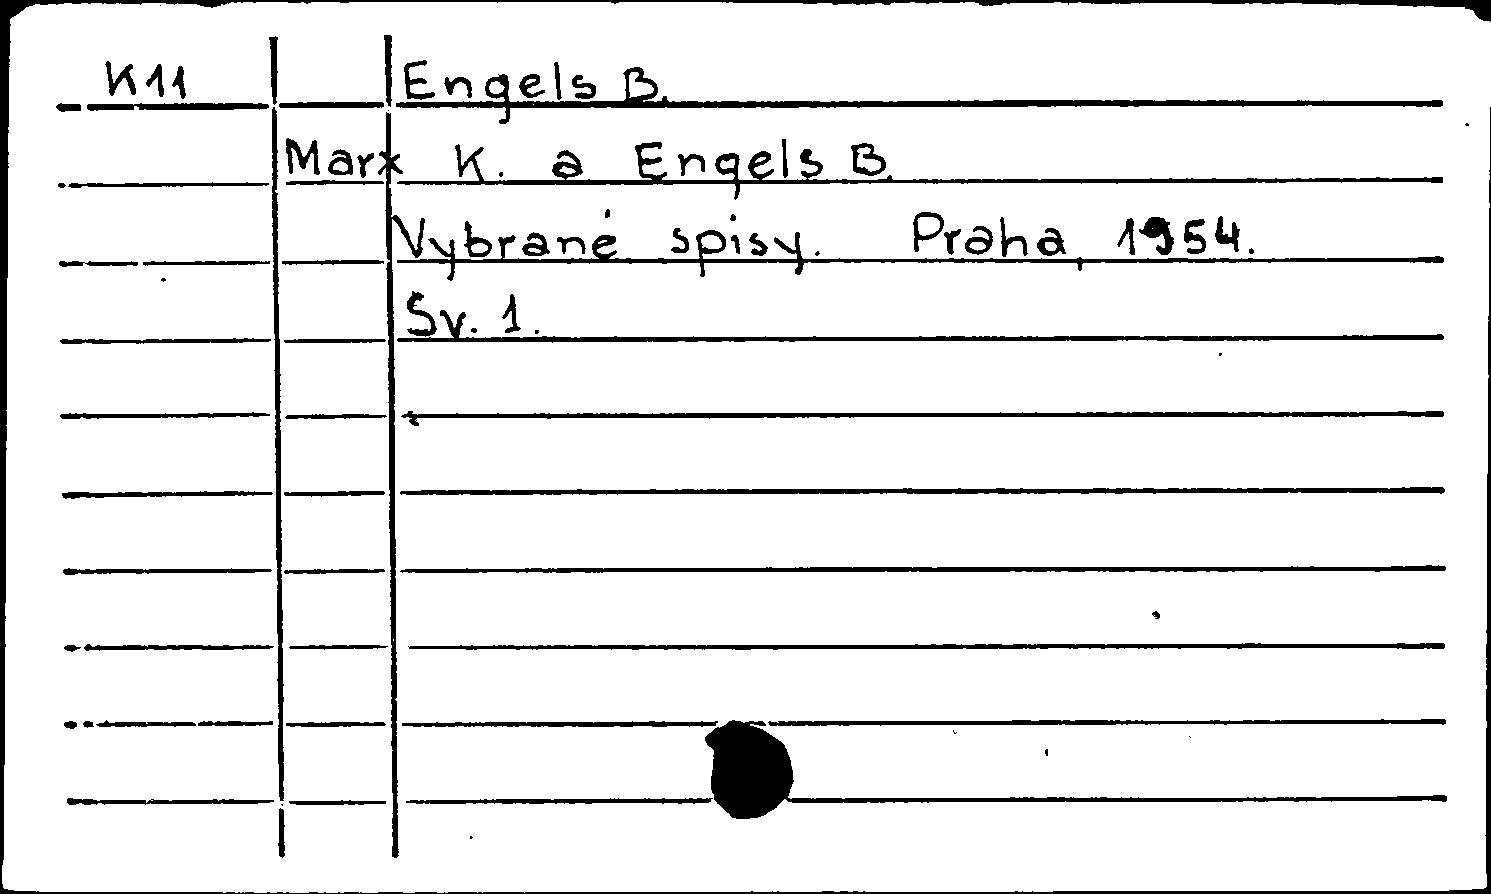 K11 Engels B.
Marx K. a Engels B.
Vybrané spisy. Praha, 1954.
Sv. 1.